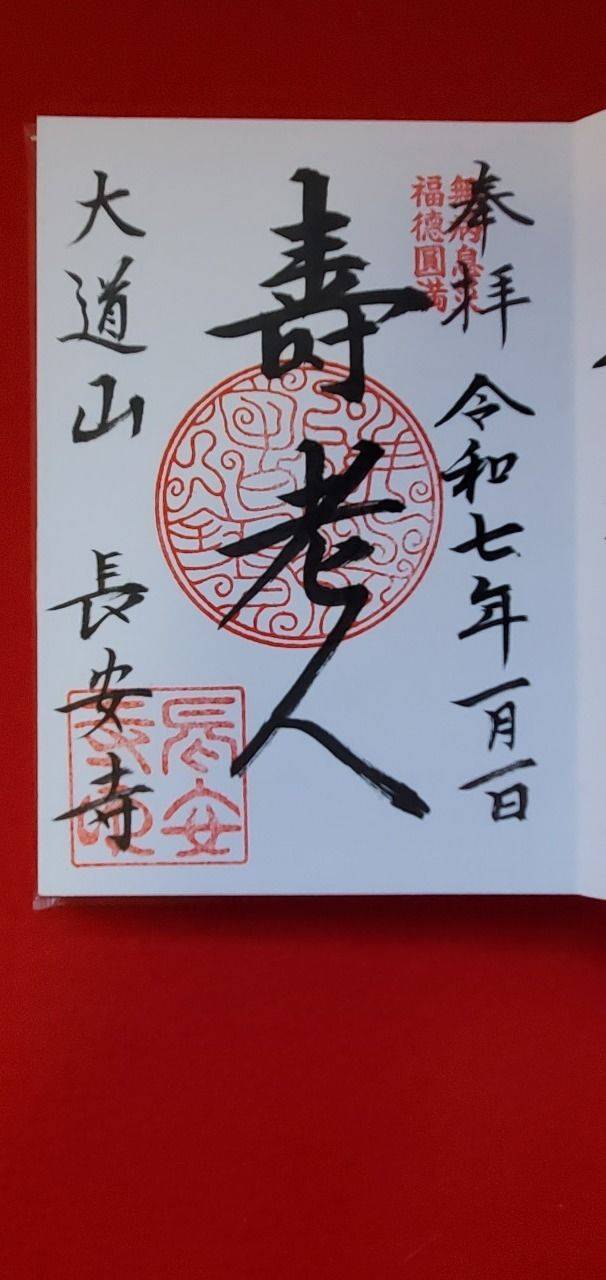 奉拝 令和七年一月一日
無病息災
福徳圓満
壽老人
大道山 長安寺